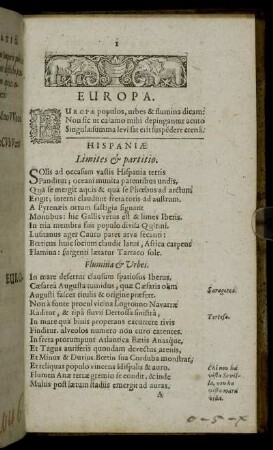 1
EUROPA.
EUROPÆ populos, urbes & flumina dicam:
Non sic ut cælatim mihi depingantur
Singula: summa levi sat erit
HISPANIÆ
Limites & partitio.
SOlis ad occasum vastis Hispania terris
Panditur; oceani multa patentibus undis,
Quà se mergit aquis & quà se
Erigit, interni claudunt freta toris ad austrum.
A Pyrenæis ortum fastigia signant
Montibus: hic Gallis versus est & limes Iberis.
In tria membra sui populo divisa Quirini.
Lusitanus ager Cauro paret arva secanti:
Bœticus huic socium claudit latus, Africa carpens
Flamina: surgenti lætatur Tarraco sole.
Flumina & Urbes.
In mare desertur clausum spatiosus Iberus,
Cæsareâ Augusta tumidus, quæ Cæsaris olim
Augusti fascet titulis & origine præfert.
Saragoça.
Non à fonte procul vicina Logronno Navarræ
Raditur, & ripâ flavi Dertosa sinistrâ,
Tortosa.
In mare quà binis properans excurrere rivis
Finditur, alveolos numero non euro cæteros.
In freta prorumpunt Atlantica Bœtis Anasque,
Et Tagus auriferis quondam devectus arenis,
Et Minor & Durius. Bœtim sua Corduba monstrat,
Et reliquas populo vincens Hispalis & auro.
Chi non ha
vista Sevil-
la, non ha
vista mara-
viela.
Flumen Anæ terræ gremio se condit, & inde
Multis post lætum stadiis emergit ad auras,
A
0-5-x